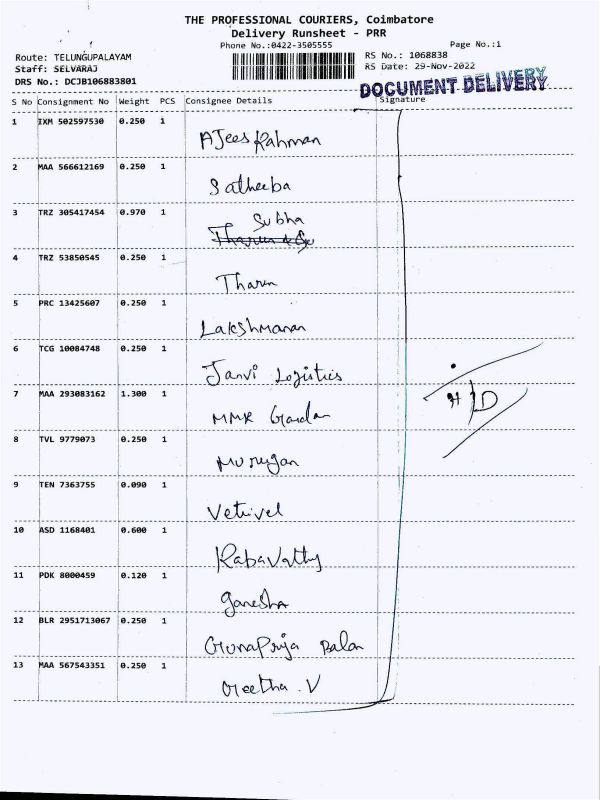 THE PROFESSIONAL COURIERS, Coimbatore
Delivery Runsheet - PRR
Phone No.:0422-3505555
Page No.:1
Route: TELUNGUPALAYAM
RS No.: 1068838
Staff: SELVARAJ
RS Date: 29-Nov-2022
DRS No.: DCJB106883801
DOCUMENT DELIVERY
S No Consignment No Weight PCS Consignee Details Signature
1 IXM 502597530 0.250 1
AJees Rahman
2 MAA 566612169 0.250 1
Satheeba
3 TRZ 305417454 0.970 1
Subha
4 TRZ 53850545 0.250 1
Tharun
5 PRC 13425607 0.250 1
Lakshmanan
6 TCG 10084748 0.250 1
Janvi Logistics
7 MAA 293083162 1.300 1
MMK
H/D
8 TVL 9779073 0.250 1
Murugan
9 TEN 7363755 0.090 1
Vetrivel
10 ASD 1168401 0.600 1
Rabavathy
11 PDK 8000459 0.120 1
Ganesha
12 BLR 2951713067 0.250 1
GunaPriya Balan
13 MAA 567543351 0.250 1
Geetha .V